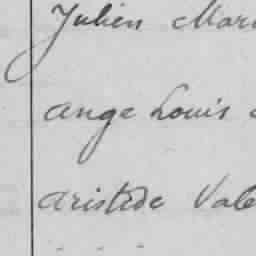 Julien Mari
ange Louis
aristide Vale